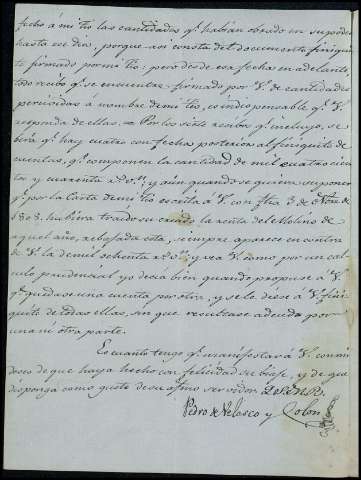 fecho á mi tio las cantidades q.e habian obrado en su poder
hasta ese dia, porque asi consta del documento finiqui-
to firmado por mi tio; pero desde esa fecha en adelante,
todo recibo q.e se encuentre firmado por V. de cantidades
percividas á nombre de mi tio, es indispensable q.e V.
responda de ellas. Por los siete recibos q.e incluyo, se
birá q.e hay cuatro con fecha posterior al finiquito de
cuentas, q.e componen la cantidad de mil cuatrocien
tos y cuarenta r.s v.n; y aún quando se quiera suponer
q.e por la Carta de mi tio escrita á V. con fha 3 de
1808 hubiera traido su criado la renta del Molino de
aquel año, rebajada esta, siempre aparece en contra
de V. la de mil setenta r.s v.n; y vea V. como por un cal-
culo prudencial yo decia bien quando propuse á V.
q.e quedase una cuenta por otra, y se le diese á V. fini-
quito de todas ellas, sin que resultase adeuda por
una ni otra parte.
Es cuanto tengo q.e manifestar á V. con mi
deseo de que haya hecho con felicidad su biaje, y de que
disponga como guste de su afmo servidor Q.S.M.B.
Pedro de Velasco y Colon